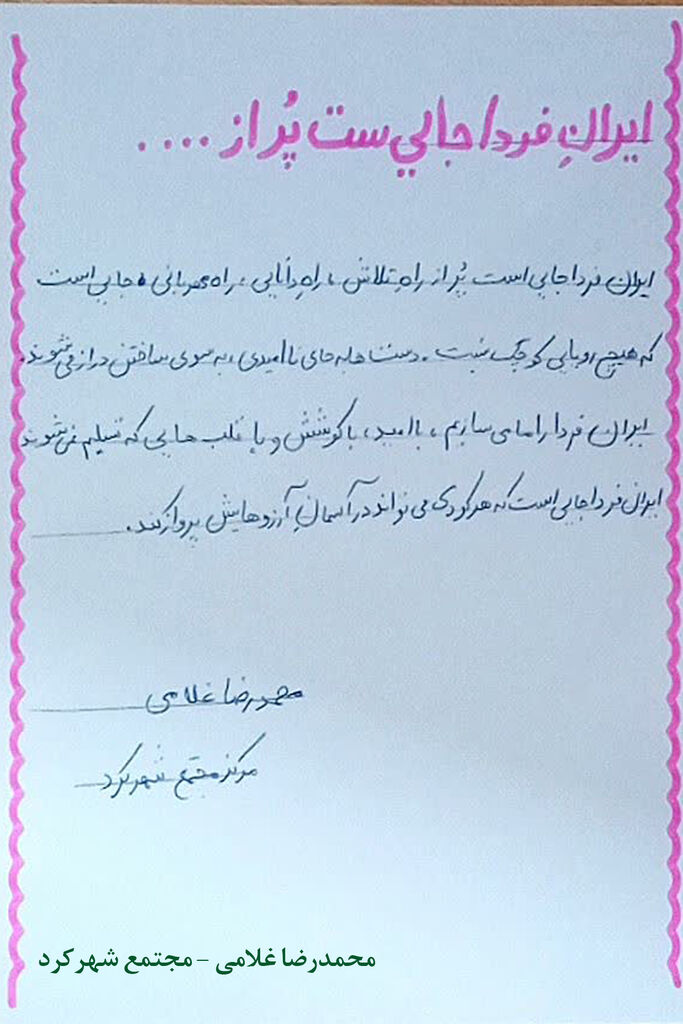 ایرانِ فردا جایی ست پُر از ....
ایران فردا جایی است پُر از راهِ تلاش ، راهِ دانایی ، راه مهربانی ، جایی است
که هیچ رویایی کوچک نیست . دست ها به جای ناامیدی ، به سوی ساختن دراز می شوند.
ایران فردا را ما می سازیم ، با امید ، با کوشش و با قلب هایی که تسلیم نمی شوند
ایران فردا جایی است که هر کودکی می تواند در آسمانِ آرزوهایش پرواز کند.
محمدرضا غلامی
مرکز مجتمع شهرکرد
محمدرضا غلامی – مجتمع شهرکرد